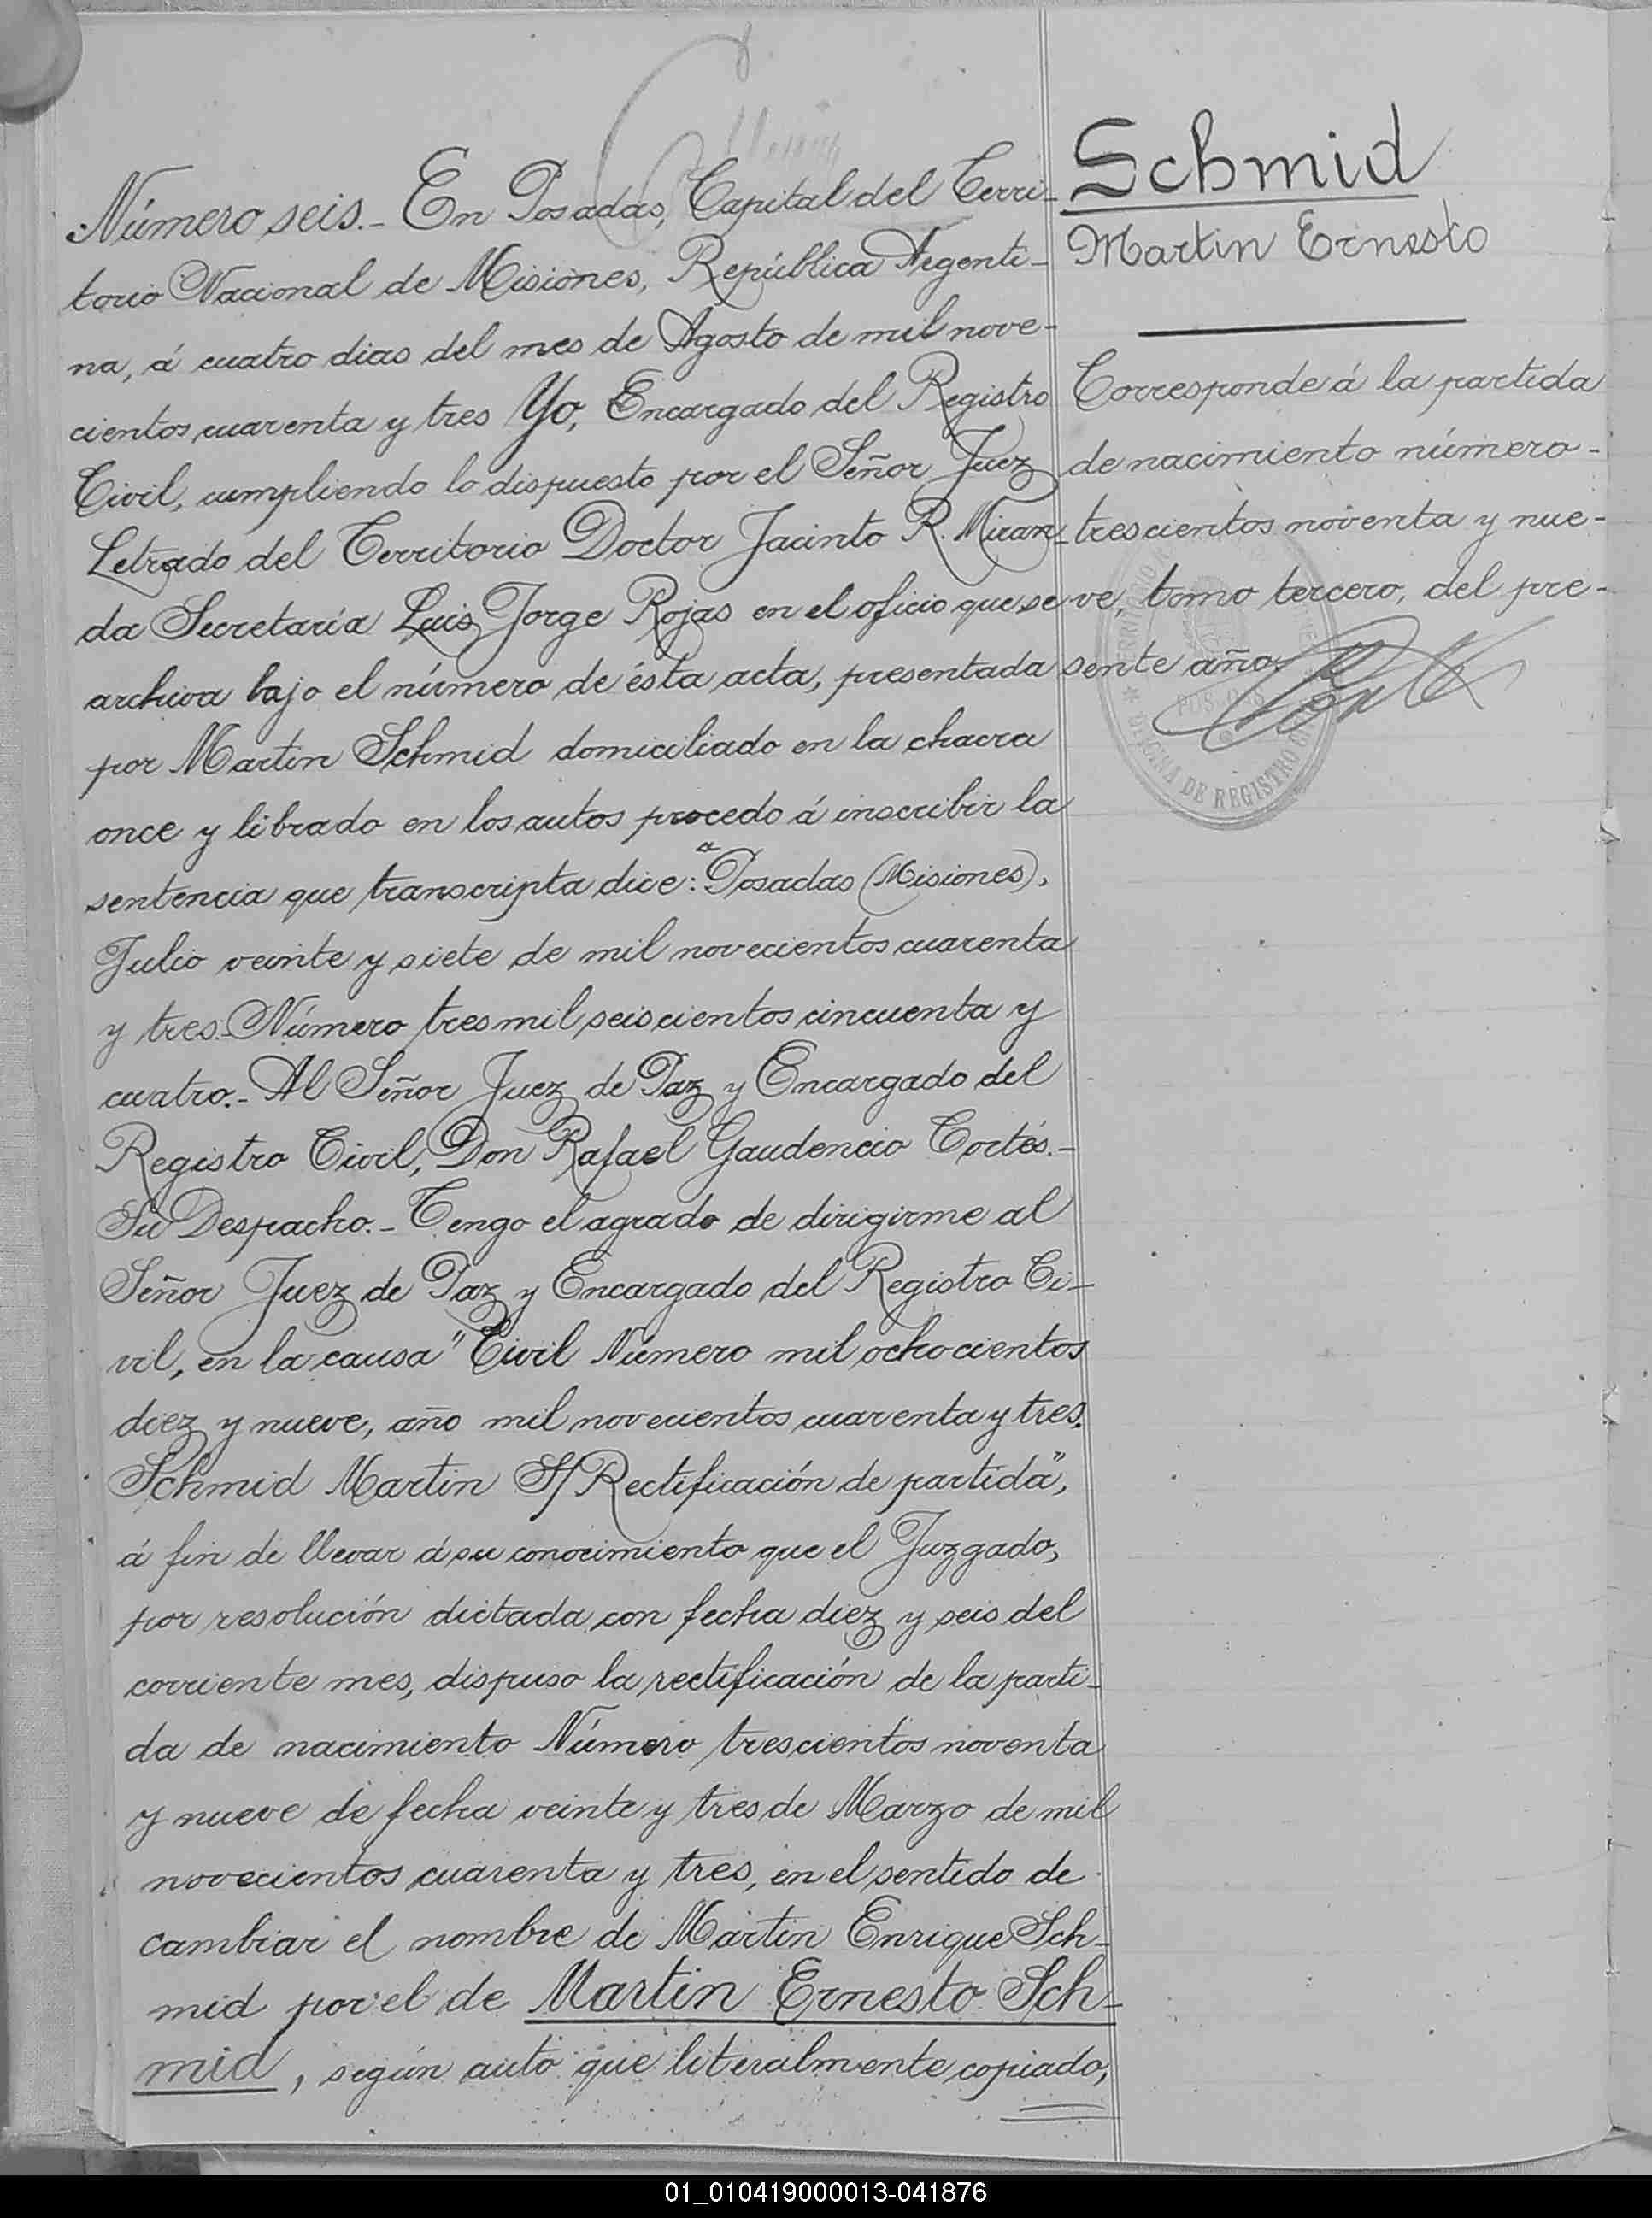 Número seis.- En Posadas, Capital del Terri-
torio Nacional de Misiones, República Argenti-
na, á cuatro dias del mes de Agosto de mil nove-
cientos cuarenta y tres Yo, Encargado del Registro
Civil, cumpliendo lo dispuesto por el Señor Juez
Letrado del Territorio Doctor Jacinto R. Miran-
da Secretaría Luis Jorge Rojas en el oficio que se
archiva bajo el número de ésta acta, presentada
por Martin Schmid domiciliado en la chacra
once y librado en los autos procedo á inscribir la
sentencia que transcripta dice: "Posadas (Misiones),
Julio veinte y siete de mil novecientos cuarenta
y tres.- Número tres mil seiscientos cincuenta y
cuatro.- Al Señor Juez de Paz y Encargado del
Registro Civil, Don Rafael Gaudencio Cortés.-
Su Despacho.- Tengo el agrado de dirigirme al
Señor Juez de Paz y Encargado del Registro Ci-
vil, en la causa "Civil Número mil ochocientos
diez y nueve, año mil novecientos cuarenta y tres.
Schmid Martin S/ Rectificación de partida",
á fin de llevar á su conocimiento que el Juzgado,
por resolución dictada con fecha diez y seis del
corriente mes, dispuso la rectificación de la parti-
da de nacimiento Número trescientos noventa
y nueve de fecha veinte y tres de Marzo de mil
novecientos cuarenta y tres, en el sentido de
cambiar el nombre de Martin Enrique Sch-
mid por el de Martin Ernesto Sch-
mid, según auto que literalmente copiado,
Schmid
Martin Ernesto
Corresponde á la partida
de nacimiento número-
trescientos noventa y nue-
ve, tomo tercero, del pre-
sente año.
POSADAS
OFICINA DE REGISTRO
01_010419000013-041876